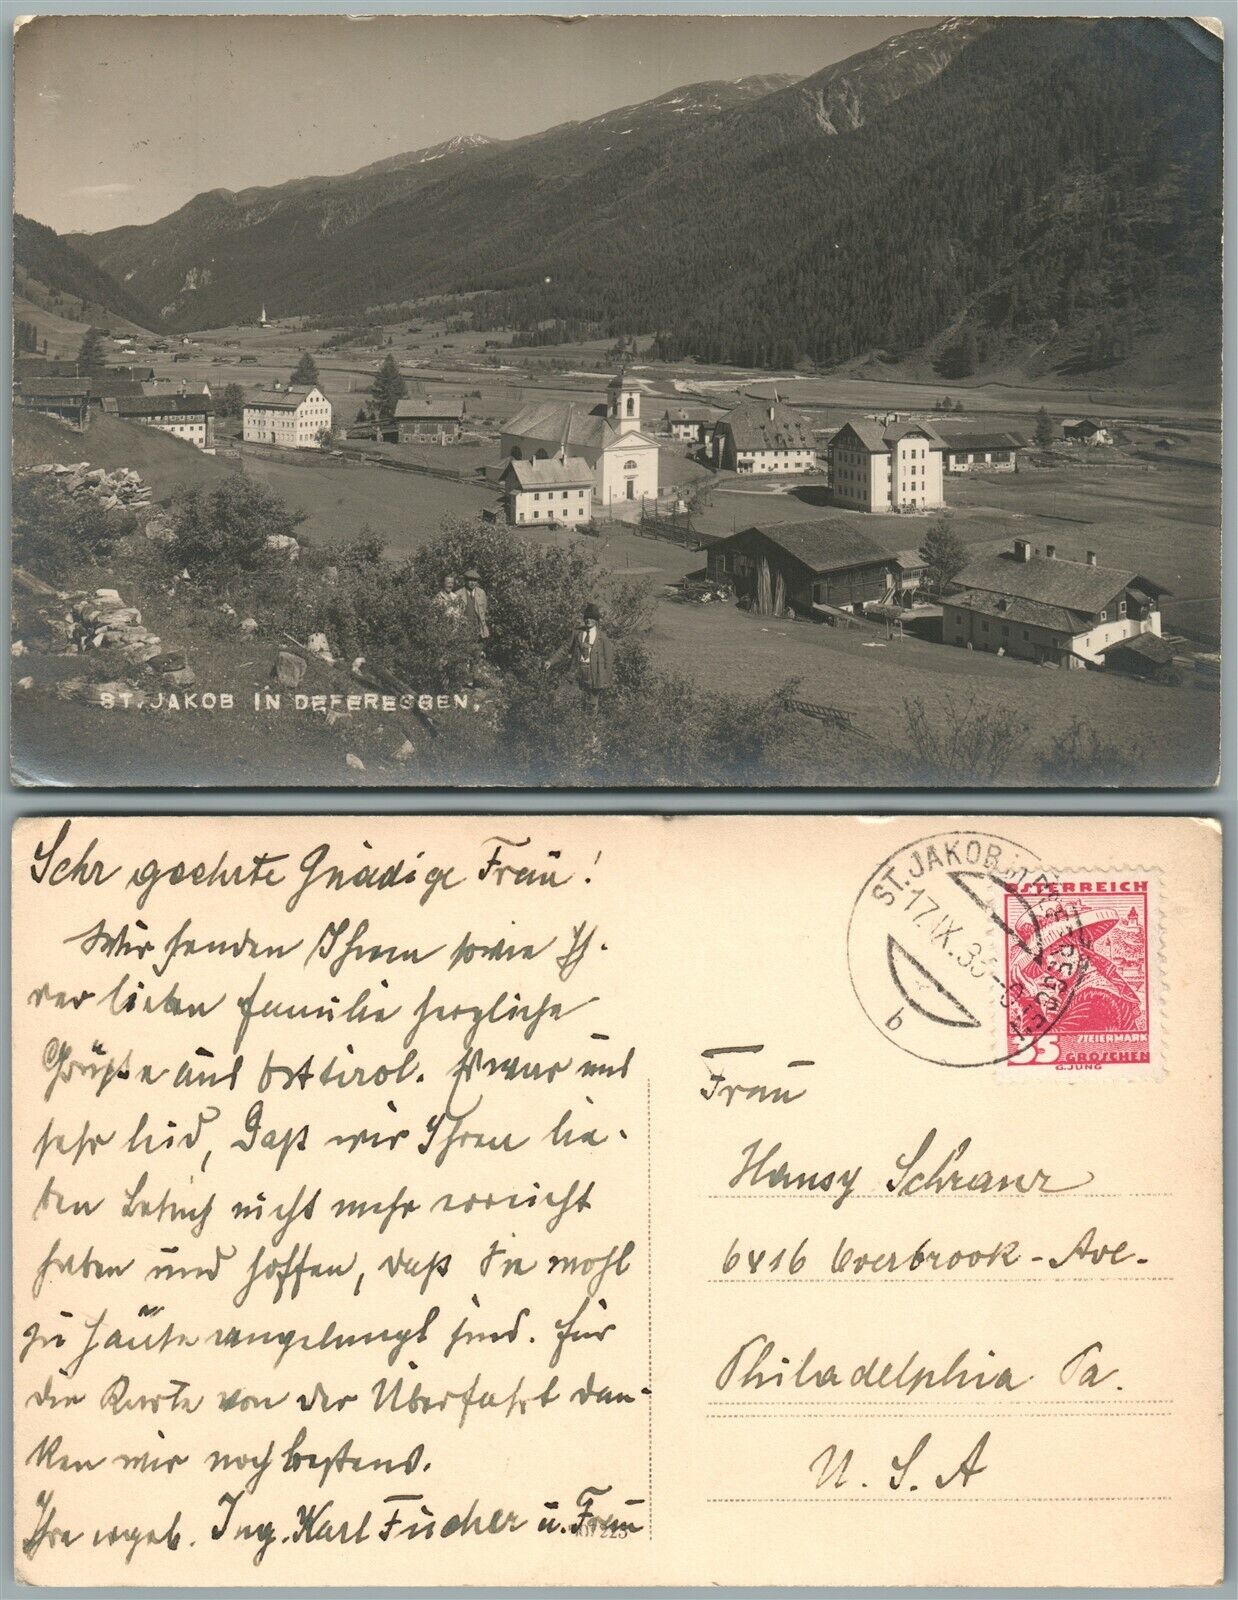 ST. JAKOB IN DEFEREGGEN.
Sehr geehrte Gnädige Frau!
Wir senden Ihnen sowie Ih-
rer lieben Familie herzliche
Grüße aus Osttirol. Es war uns
sehr leid, daß wir Ihren lie-
ben Besuch nicht mehr erreicht
haben und hoffen, daß Sie wohl
zu Hause angelangt sind. Für
die Karte von der Überfahrt dan-
ken wir noch bestens.
Ihre ergeb. Ing. Karl Fucher u. Frau
ST. JAKOB in
17.IX.35
b
ÖSTERREICH
STEIERMARK
35 GROSCHEN
G.JUNG
Frau
Hansy Schranz
6416 Overbrook-Ave.
Philadelphia Pa.
U.S.A